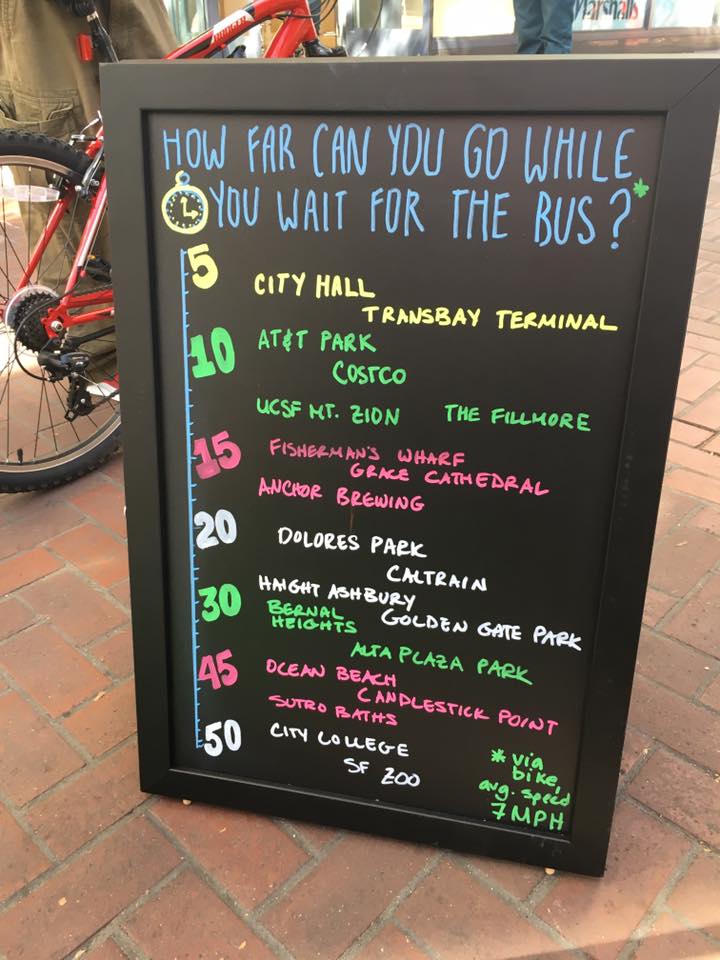 Marshalls
HOW FAR CAN YOU GO WHILE
YOU WAIT FOR THE BUS?*
5 CITY HALL
TRANSBAY TERMINAL
10 AT&T PARK
COSTCO
UCSF MT. ZION THE FILLMORE
15 FISHERMAN'S WHARF
GRACE CATHEDRAL
ANCHOR BREWING
20 DOLORES PARK
CALTRAIN
HAIGHT ASHBURY
GOLDEN GATE PARK
30 BERNAL
HEIGHTS
ALTA PLAZA PARK
45 OCEAN BEACH
CANDLESTICK POINT
SUTRO BATHS
50 CITY COLLEGE
SF ZOO
* via
bike,
avg. speed
7 MPH